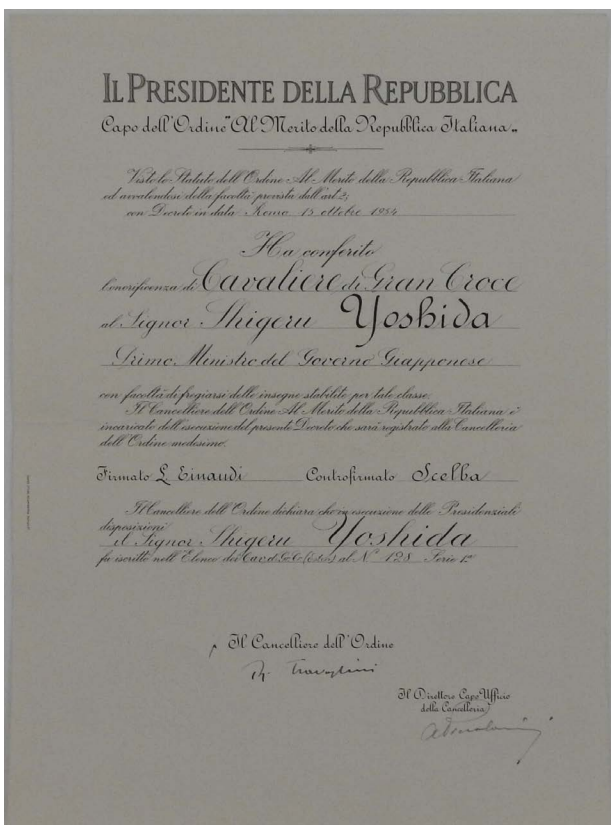 IL PRESIDENTE DELLA REPUBBLICA
Capo dell'Ordine "Al Merito della Repubblica Italiana"
Visto lo Statuto dell'Ordine Al Merito della Repubblica Italiana
ed avvalendosi della facoltà prevista dall'art. 2;
con Decreto in data Roma 15 ottobre 1954
Ha conferito
l'onorificenza di Cavaliere di Gran Croce
al Signor Shigeru Yoshida
Primo Ministro del Governo Giapponese
con facoltà di fregiarsi delle insegne stabilite per tale classe.
Il Cancelliere dell'Ordine Al Merito della Repubblica Italiana è
incaricato dell'esecuzione del presente Decreto che sarà registrato alla Cancelleria
dell'Ordine medesimo.
Firmato L. Einaudi Controfirmato Scelba
Il Cancelliere dell'Ordine dichiara che in esecuzione delle Presidenziali
disposizioni
il Signor Shigeru Yoshida
fu iscritto nell'Elenco dei Cav. di Gr. Cr. (Esteri) al N° 128 Serie 1ª
Il Cancelliere dell'Ordine
Il Direttore Capo Ufficio
della Cancelleria